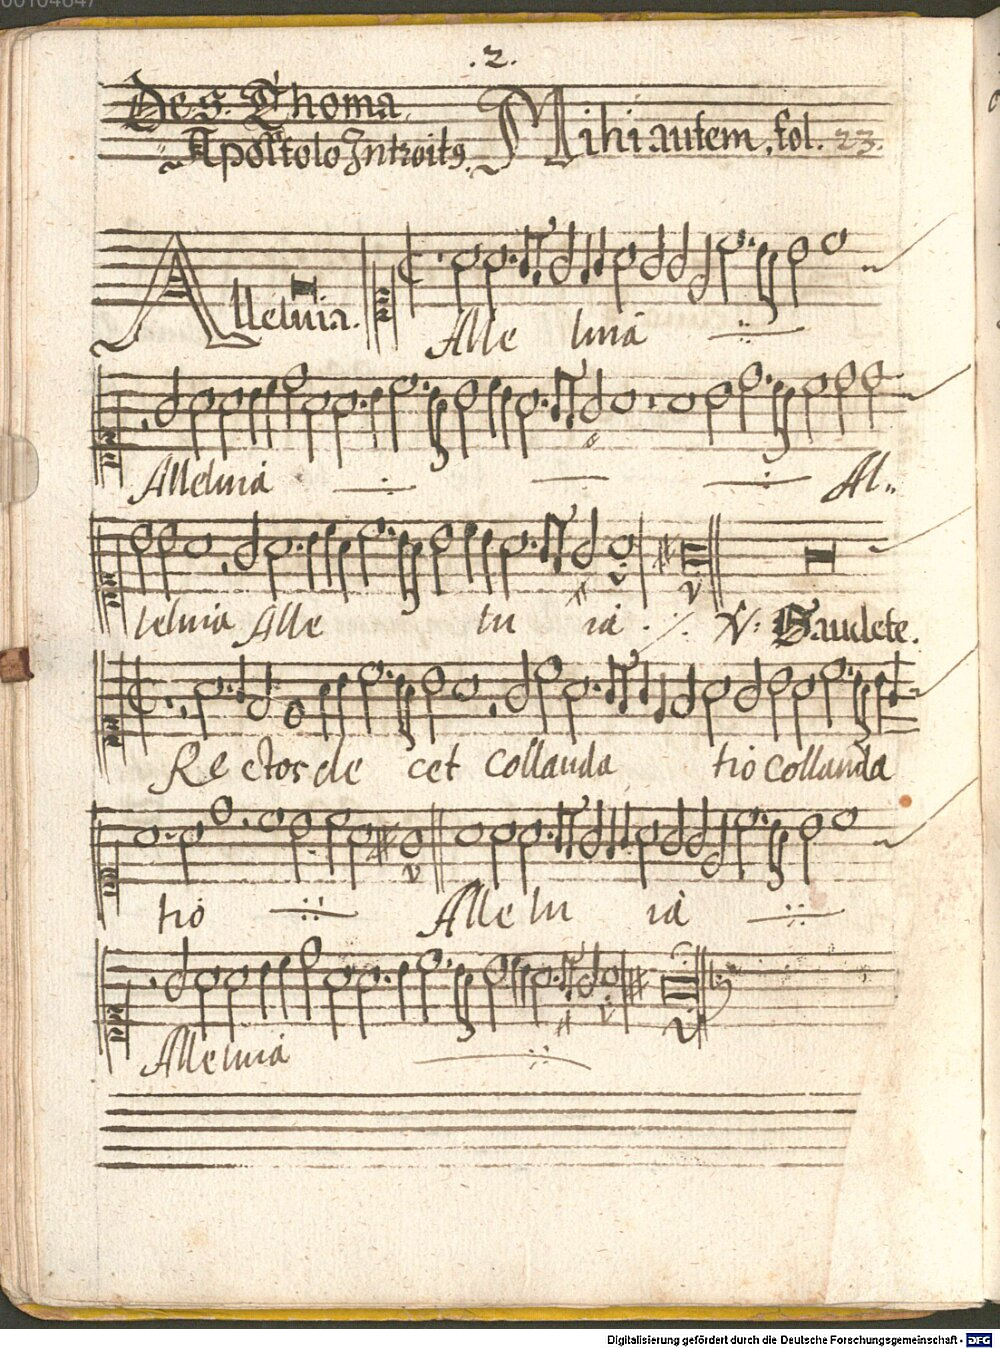 00104847
.2.
De S. Thoma
Apostolo Introitꝫ. Mihi autem, fol. 23.
Alleluia.
Alle luia
Alleluia Al„
leluia Alle lu ia. V: Gaudete.
Rectos de cet collauda tio collauda
tio Alle lu ia
Alleluia
Digitalisierung gefördert durch die Deutsche Forschungsgemeinschaft - DFG